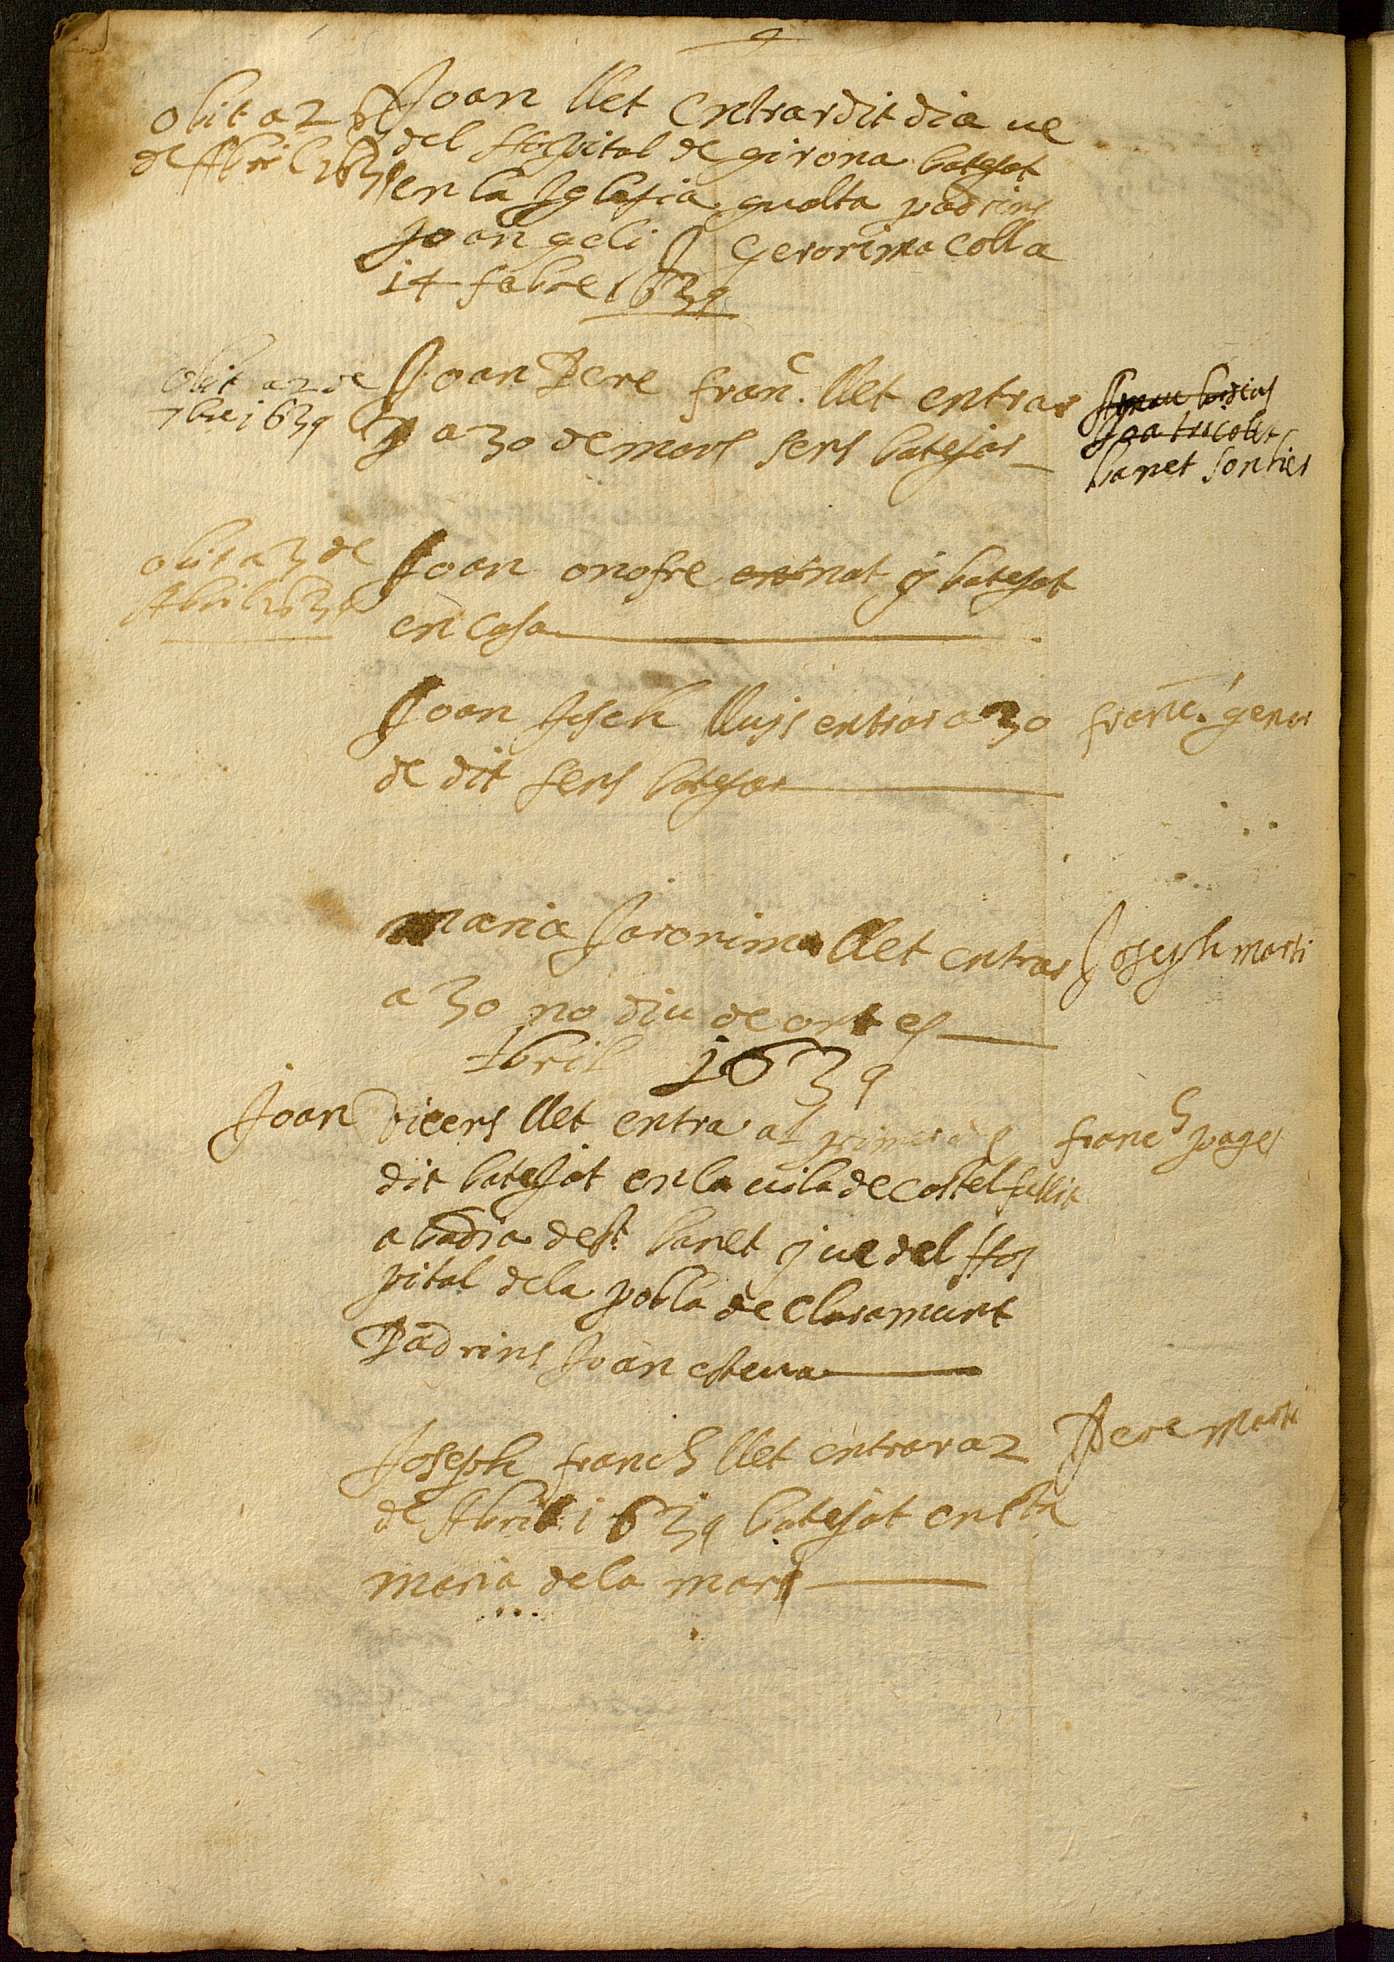 obit a 28
de Abril 1639
Joan llet entrar dit dia ve
del Hospital de girona batejat
en la Iglesia gualta padrins
Joan geli y Geronima Colla
14 febre 1639
obit a 2 de
7bre 1639
Joan Pere franc. llet entrar
a 30 de mars sens batejar
banet sonties
obit a 3 de
Abril 1639
Joan onofre nat y batejat
en casa
Joan Joseph lluys entrar a 30
de dit sens batejar
franc. gener
maria Jaronima llet entrar
a 30 no diu de ont es
Joseph marti
Abril 1639
Joan Vicens llet entra al primer de
dit batejat en la vila de Castelfullit
abadia de St. banet y ve del Hos
pital de la pobla de Claramunt
Padrins Joan esteva
franch pages
Joseph franch llet entrar a 2
de Abril 1639 batejat en Sta
maria de la mar
Pere Marti